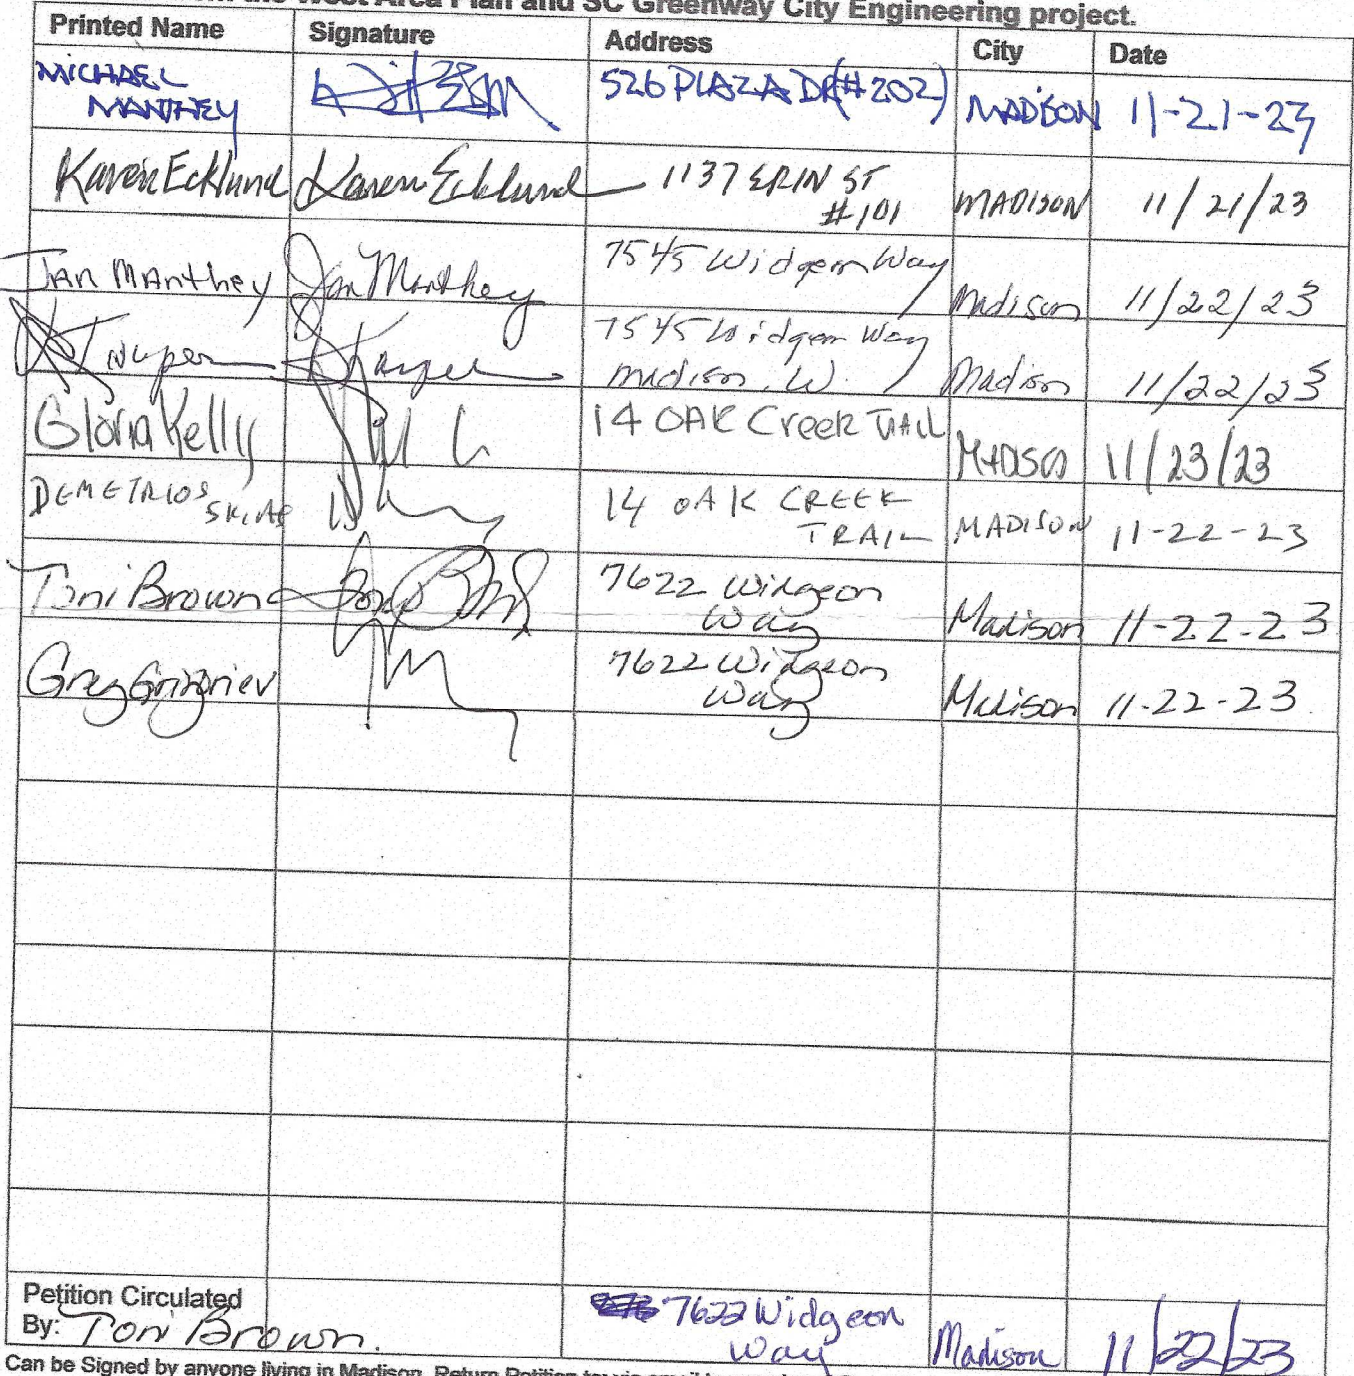 the West Area Plan and SC Greenway City Engineering project.
Printed Name Signature Address City Date
MICHAEL MANTHEY 526 PLAZA DR (#202) MADISON 11-21-23
Karen Ecklund Karen Ecklund 1137 ERIN ST #101 MADISON 11/21/23
JAN MANthey Jan Manthey 7545 Widgeon Way Madison 11/22/23
7545 Widgeon Way Madison, W. Madison 11/22/23
Gloria Kelly 14 OAK Creek TRAIL MADISO 11/23/23
DEMETRIOS 14 OAK CREEK TRAIL MADISON 11-22-23
Toni Brown 7622 Widgeon Way Madison 11-22-23
Greg Grigoriev 7622 Widgeon Way Madison 11-22-23
Petition Circulated
By: Toni Brown. 7622 Widgeon Way Madison 11/22/23
Can be Signed by anyone living in Madison. Return Petition to: via email